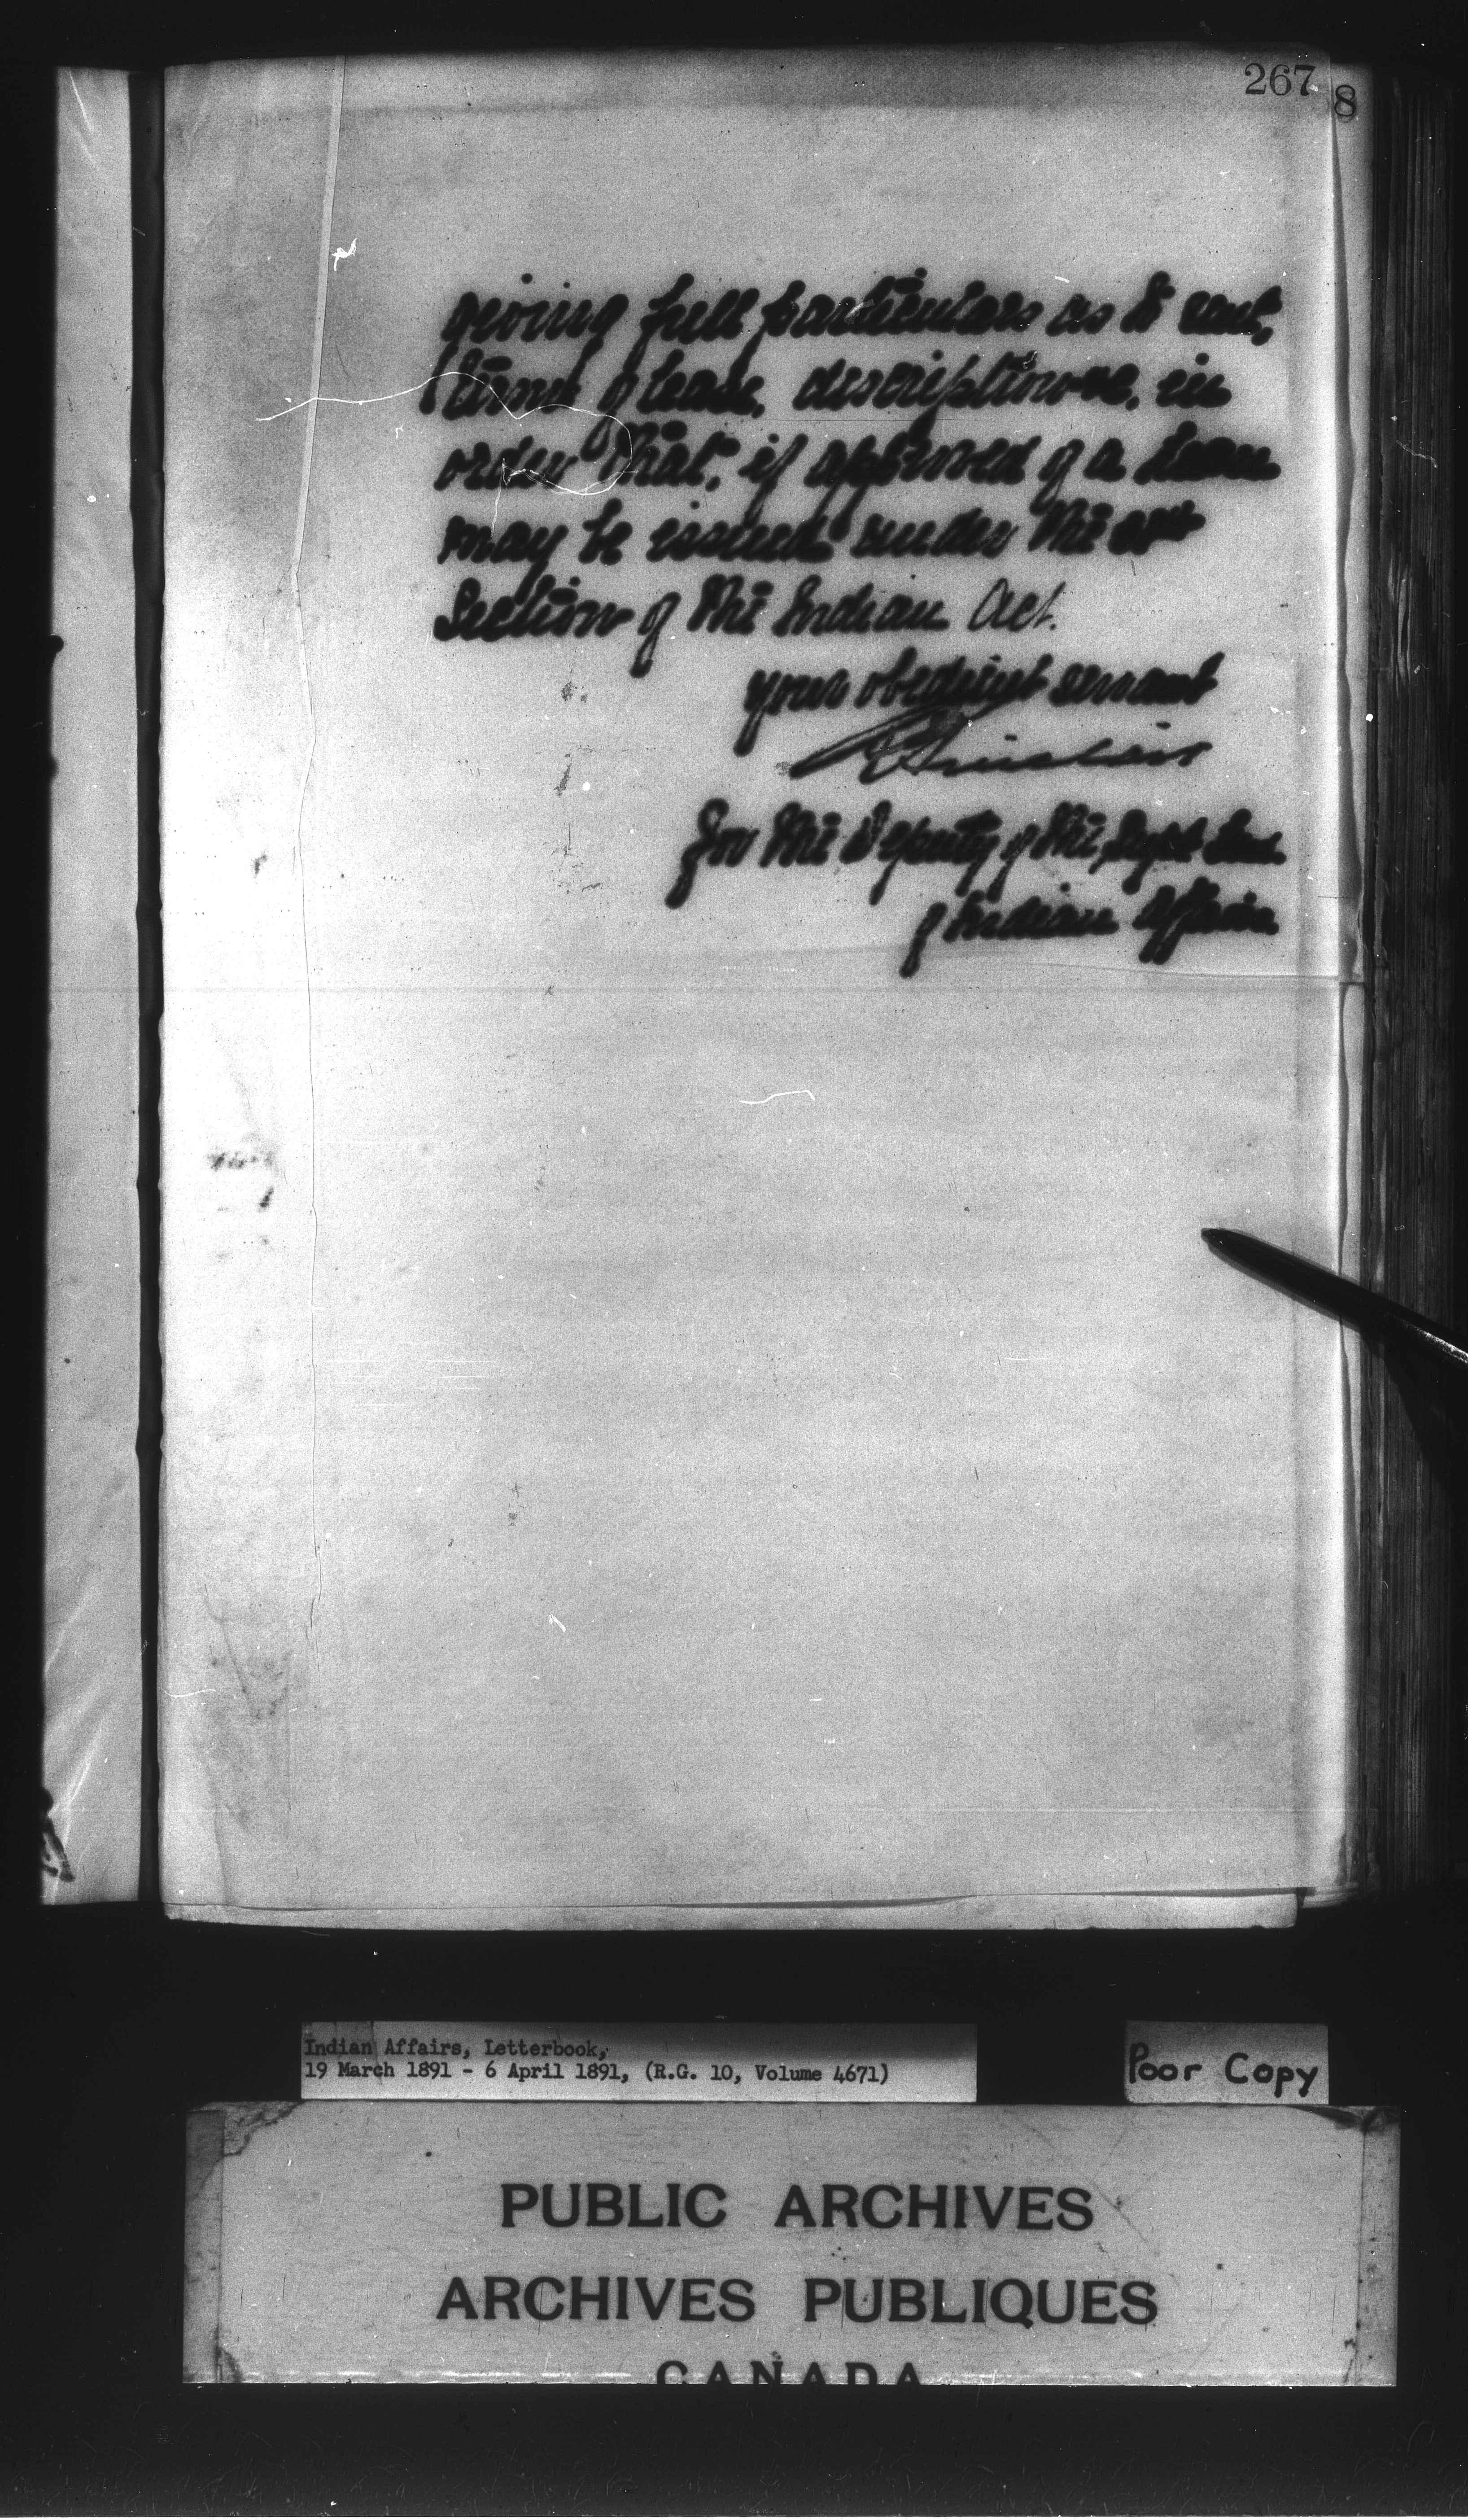 267
8
giving full particulars as to rent,
term of lease, description &c. in
order that, if approved of a
may be issued under the
Section of the Indian Act.
your obedient servant
R Sinclair
for the Deputy of the Supt Gen
of Indian Affairs
Indian Affairs, Letterbook,
19 March 1891 - 6 April 1891, (R.G. 10, Volume 4671)
Poor Copy
PUBLIC ARCHIVES
ARCHIVES PUBLIQUES
CANADA